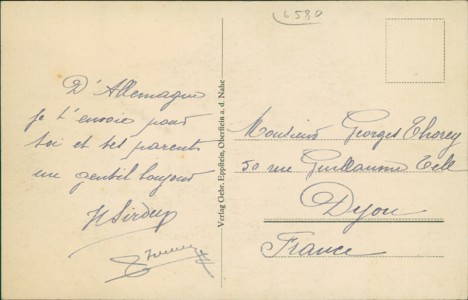 6580
D'Allemagne
je t'envoie pour
toi et tes parents
un gentil bonjour
Verlag Gebr. Eppstein, Oberstein a. d. Nahe
Monsieur Georges Thorey
50 rue Guillaume Tell
Dijon
France